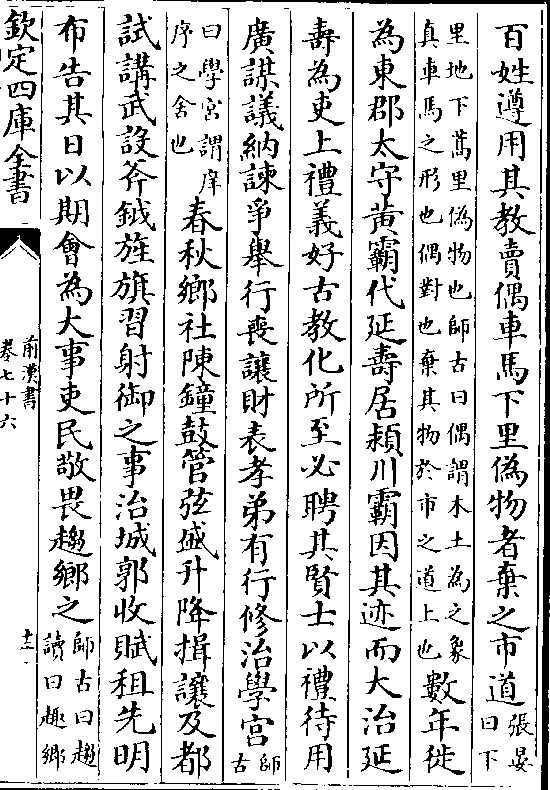 百姓遵用其教賣偶車馬下里偽物者棄之市道張晏曰下
里地下蒿里偽物也師古曰偶謂木土為之象真車馬之形也偶對也棄其物於市之道上也數年徙
為東郡太守黃霸代延壽居潁川霸因其迹而大治延
壽為吏上禮義好古教化所至必聘其賢士以禮待用
廣謀議納諫爭舉行喪讓財表孝弟有行修治學官師古
曰學宮謂庠序之舍也春秋鄉社陳鐘鼓管弦盛升降揖讓及都
試講武設斧鉞旌旗習射御之事治城郭收賦租先明
布告其日以期會為大事吏民敬畏趨鄉之師古曰趨讀曰趣鄉
欽定四庫全書
前漢書
卷七十六
十二